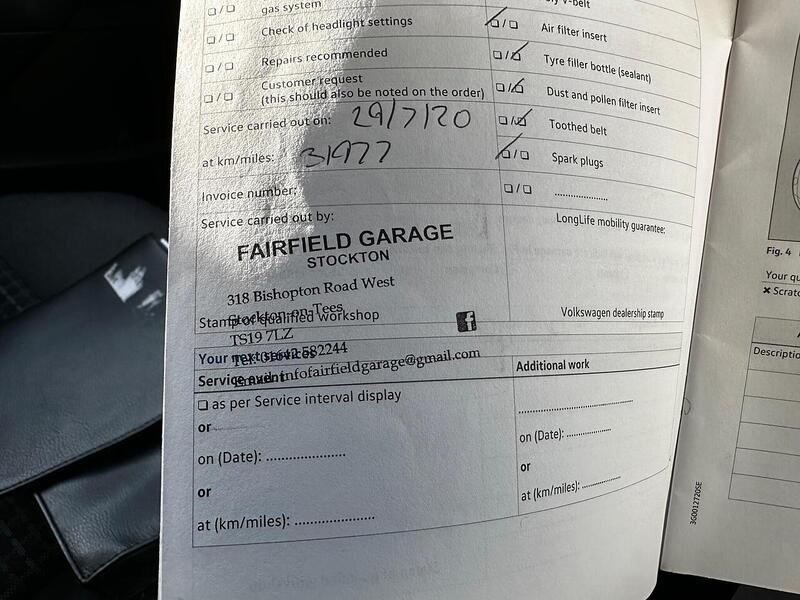 gas system
Check of headlight settings
Repairs recommended
Customer request
(this should also be noted on the order)
Service carried out on: 29/7/20
at km/miles: 31977
Invoice number:
Service carried out by:
FAIRFIELD GARAGE
STOCKTON
318 Bishopton Road West
Stockton-on-Tees
Stamp of qualified workshop
TS19 7LZ
Your next service
Tel: 01642 582244
Service event
Email: infofairfieldgarage@gmail.com
❏ as per Service interval display
or
on (Date): ......................
or
at (km/miles): ......................
V-belt
Air filter insert
Tyre filler bottle (sealant)
Dust and pollen filter insert
Toothed belt
Spark plugs
......................
LongLife mobility guarantee:
Volkswagen dealership stamp
Additional work
......................
on (Date): ............
or
at (km/miles): ............
3G0012720SE
Fig. 4
Your qu
✖ Scratc
A
Descriptio